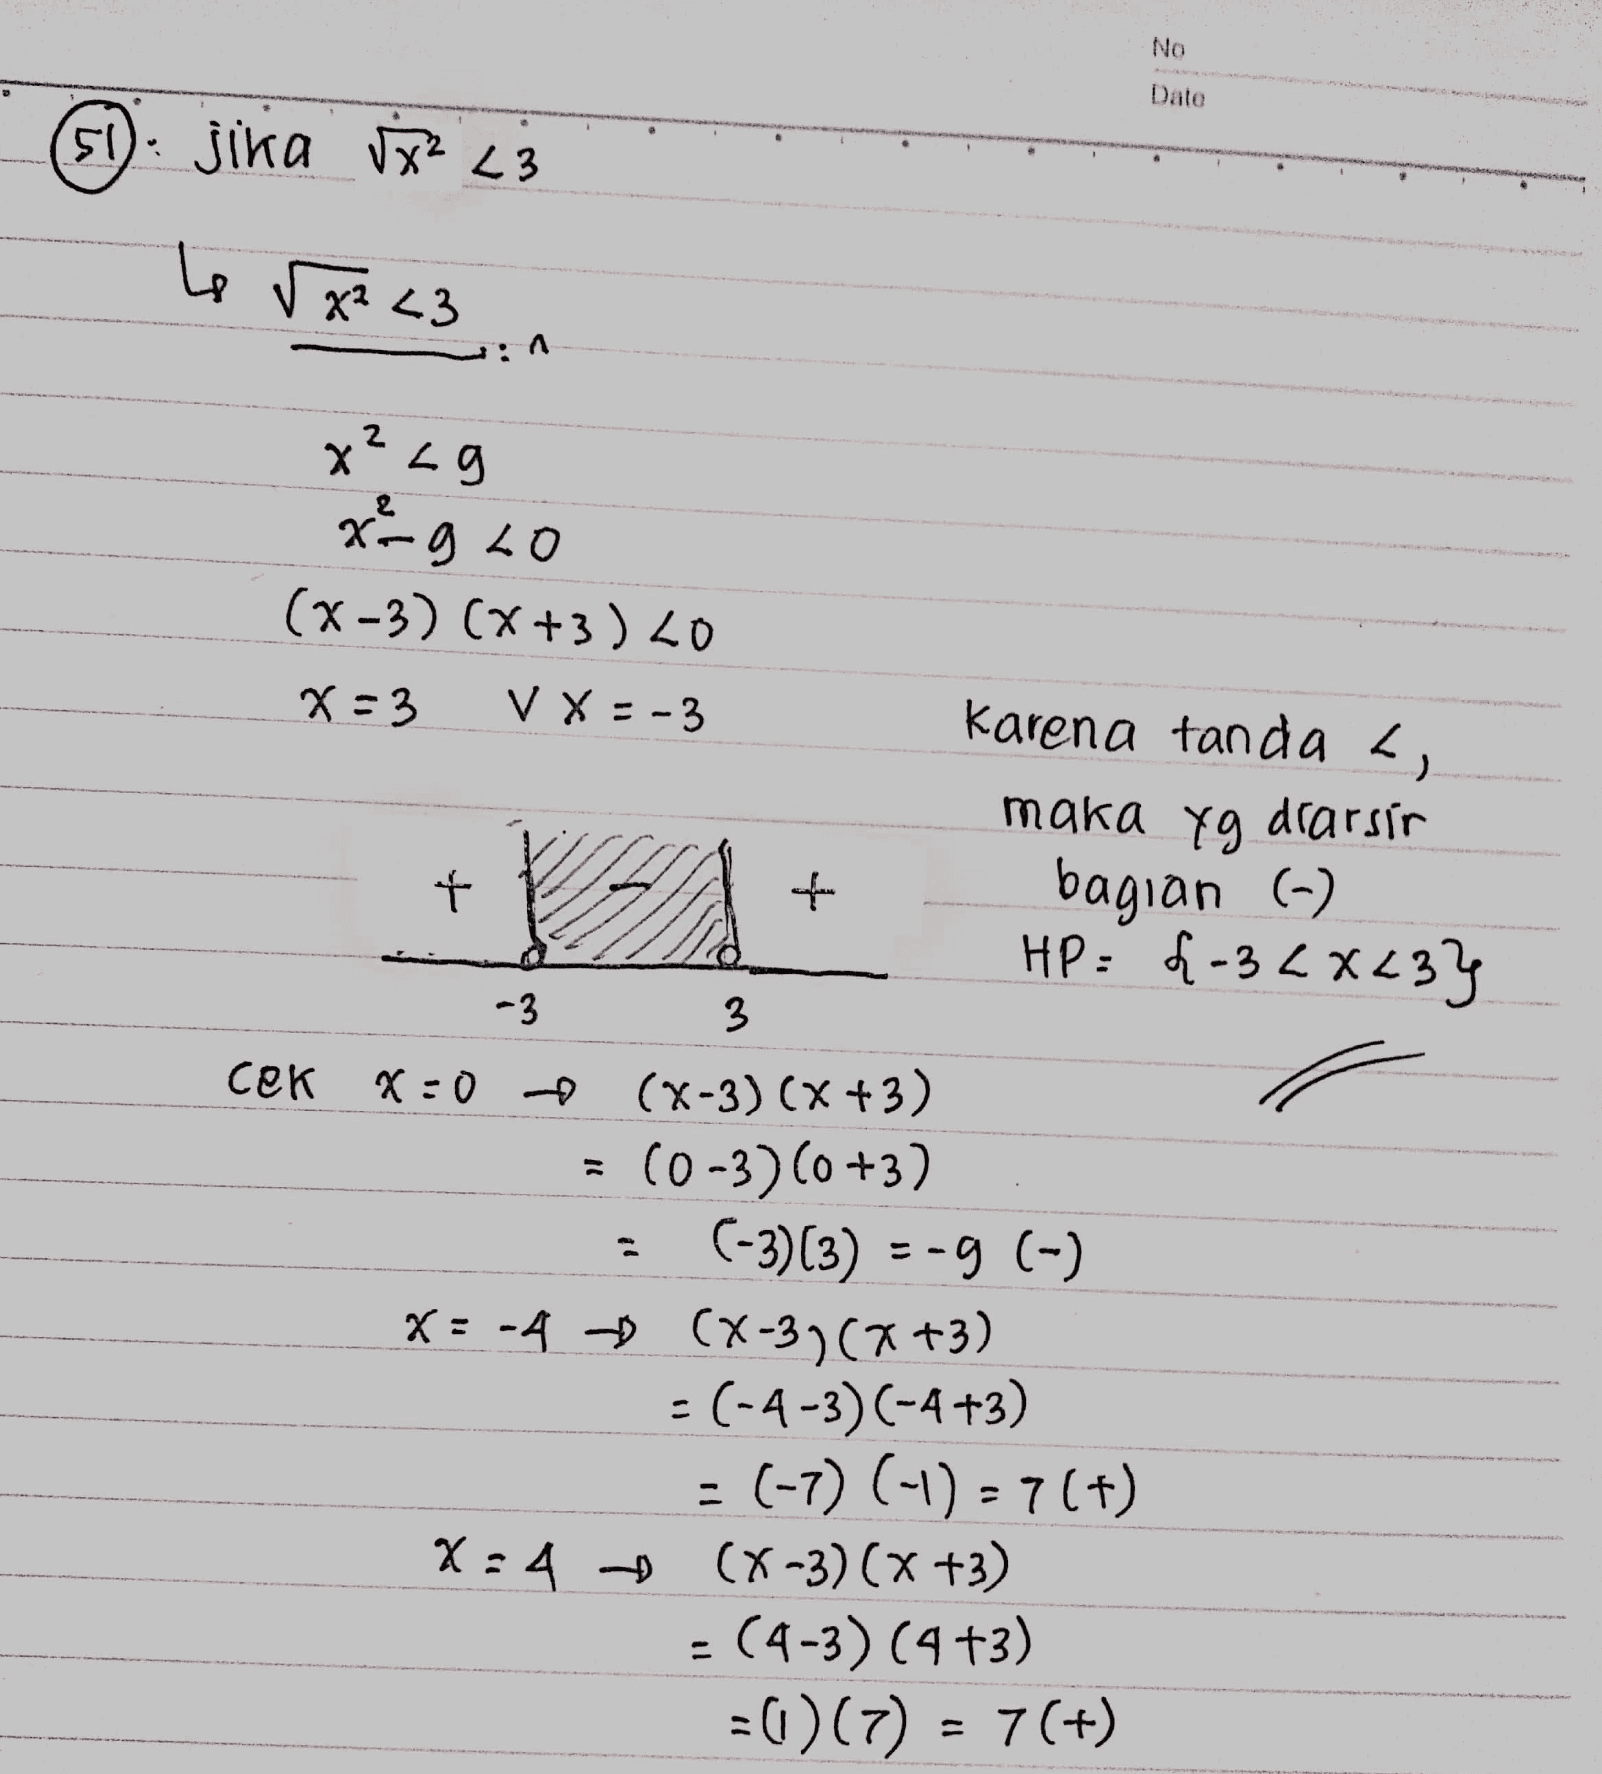 No
Date
51 : jika √x² < 3
↳ √x² < 3
: ^
x² < 9
x² - 9 < 0
(x-3) (x+3) < 0
x = 3 V x = -3
Karena tanda <,
maka yg diarsir
bagian (-)
HP = {-3 < x < 3}
+ - +
-3 3
cek x = 0 → (x-3) (x+3)
= (0-3) (0+3)
= (-3)(3) = -9 (-)
x = -4 → (x-3) (x+3)
= (-4-3) (-4+3)
= (-7) (-1) = 7 (+)
x = 4 → (x-3) (x+3)
= (4-3) (4+3)
= (1) (7) = 7 (+)